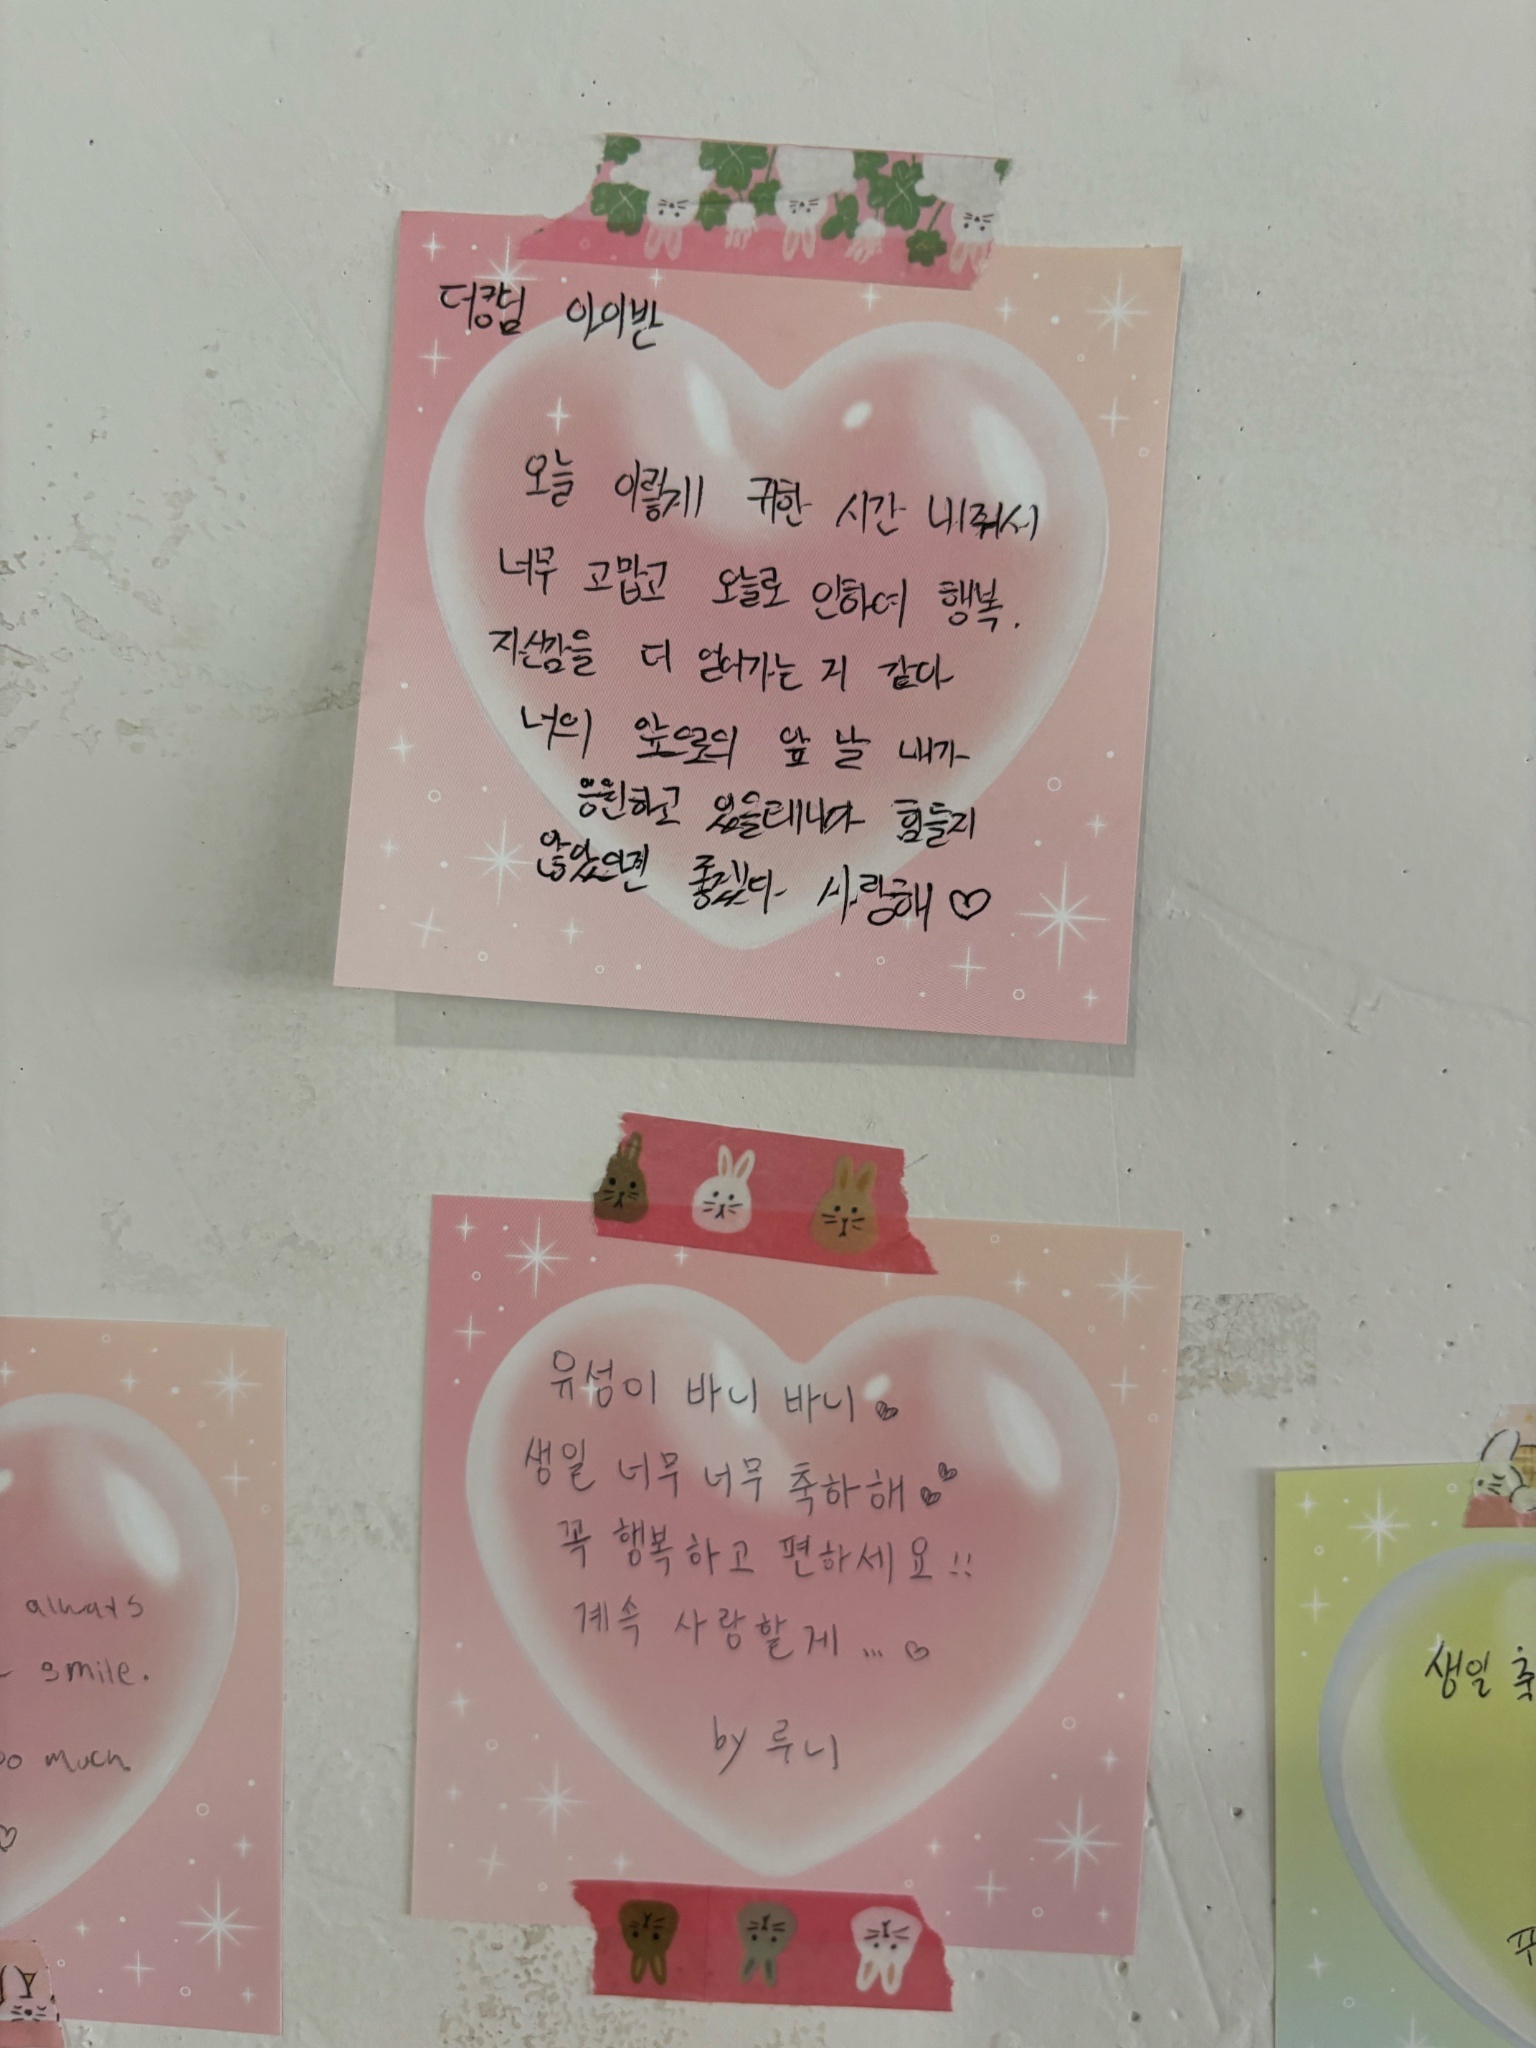 더캉덤 아이반
오늘 이렇게 귀한 시간 내줘서
너무 고맙고 오늘로 인하여 행복.
자신감을 더 얻어가는 거 같다
너의 앞으로의 앞 날 내가
응원하고 있을테니까 힘들지
않았으면 좋겠다 사랑해♡
유성이 바니 바니
생일 너무 너무 축하해
꼭 행복하고 편하세요!!
계속 사랑할게...♡
by 루니
always
smile.
much
♡
생일